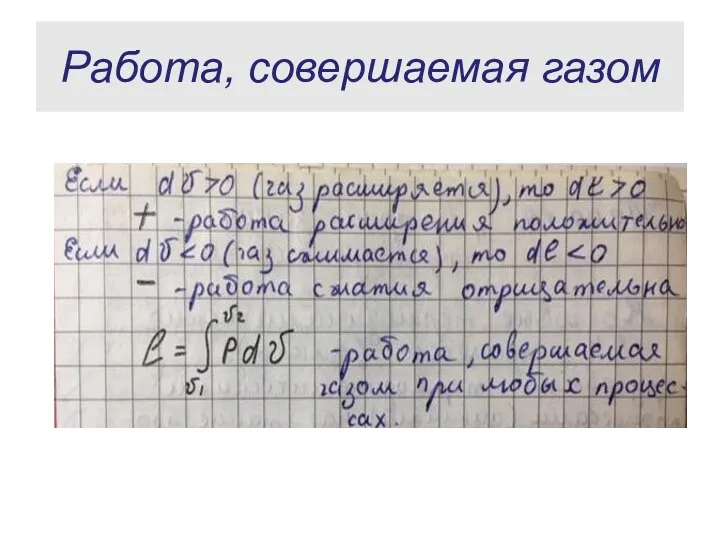 Работа, совершаемая газом
Если dv>0 (газ расширяется), то dl>0
+ -работа расширения положительно
Если dv<0 (газ сжимается), то dl<0
- -работа сжатия отрицательна
l = ∫ Pdv -работа, совершаемая
v2
v1 газом при любых процес-
сах.